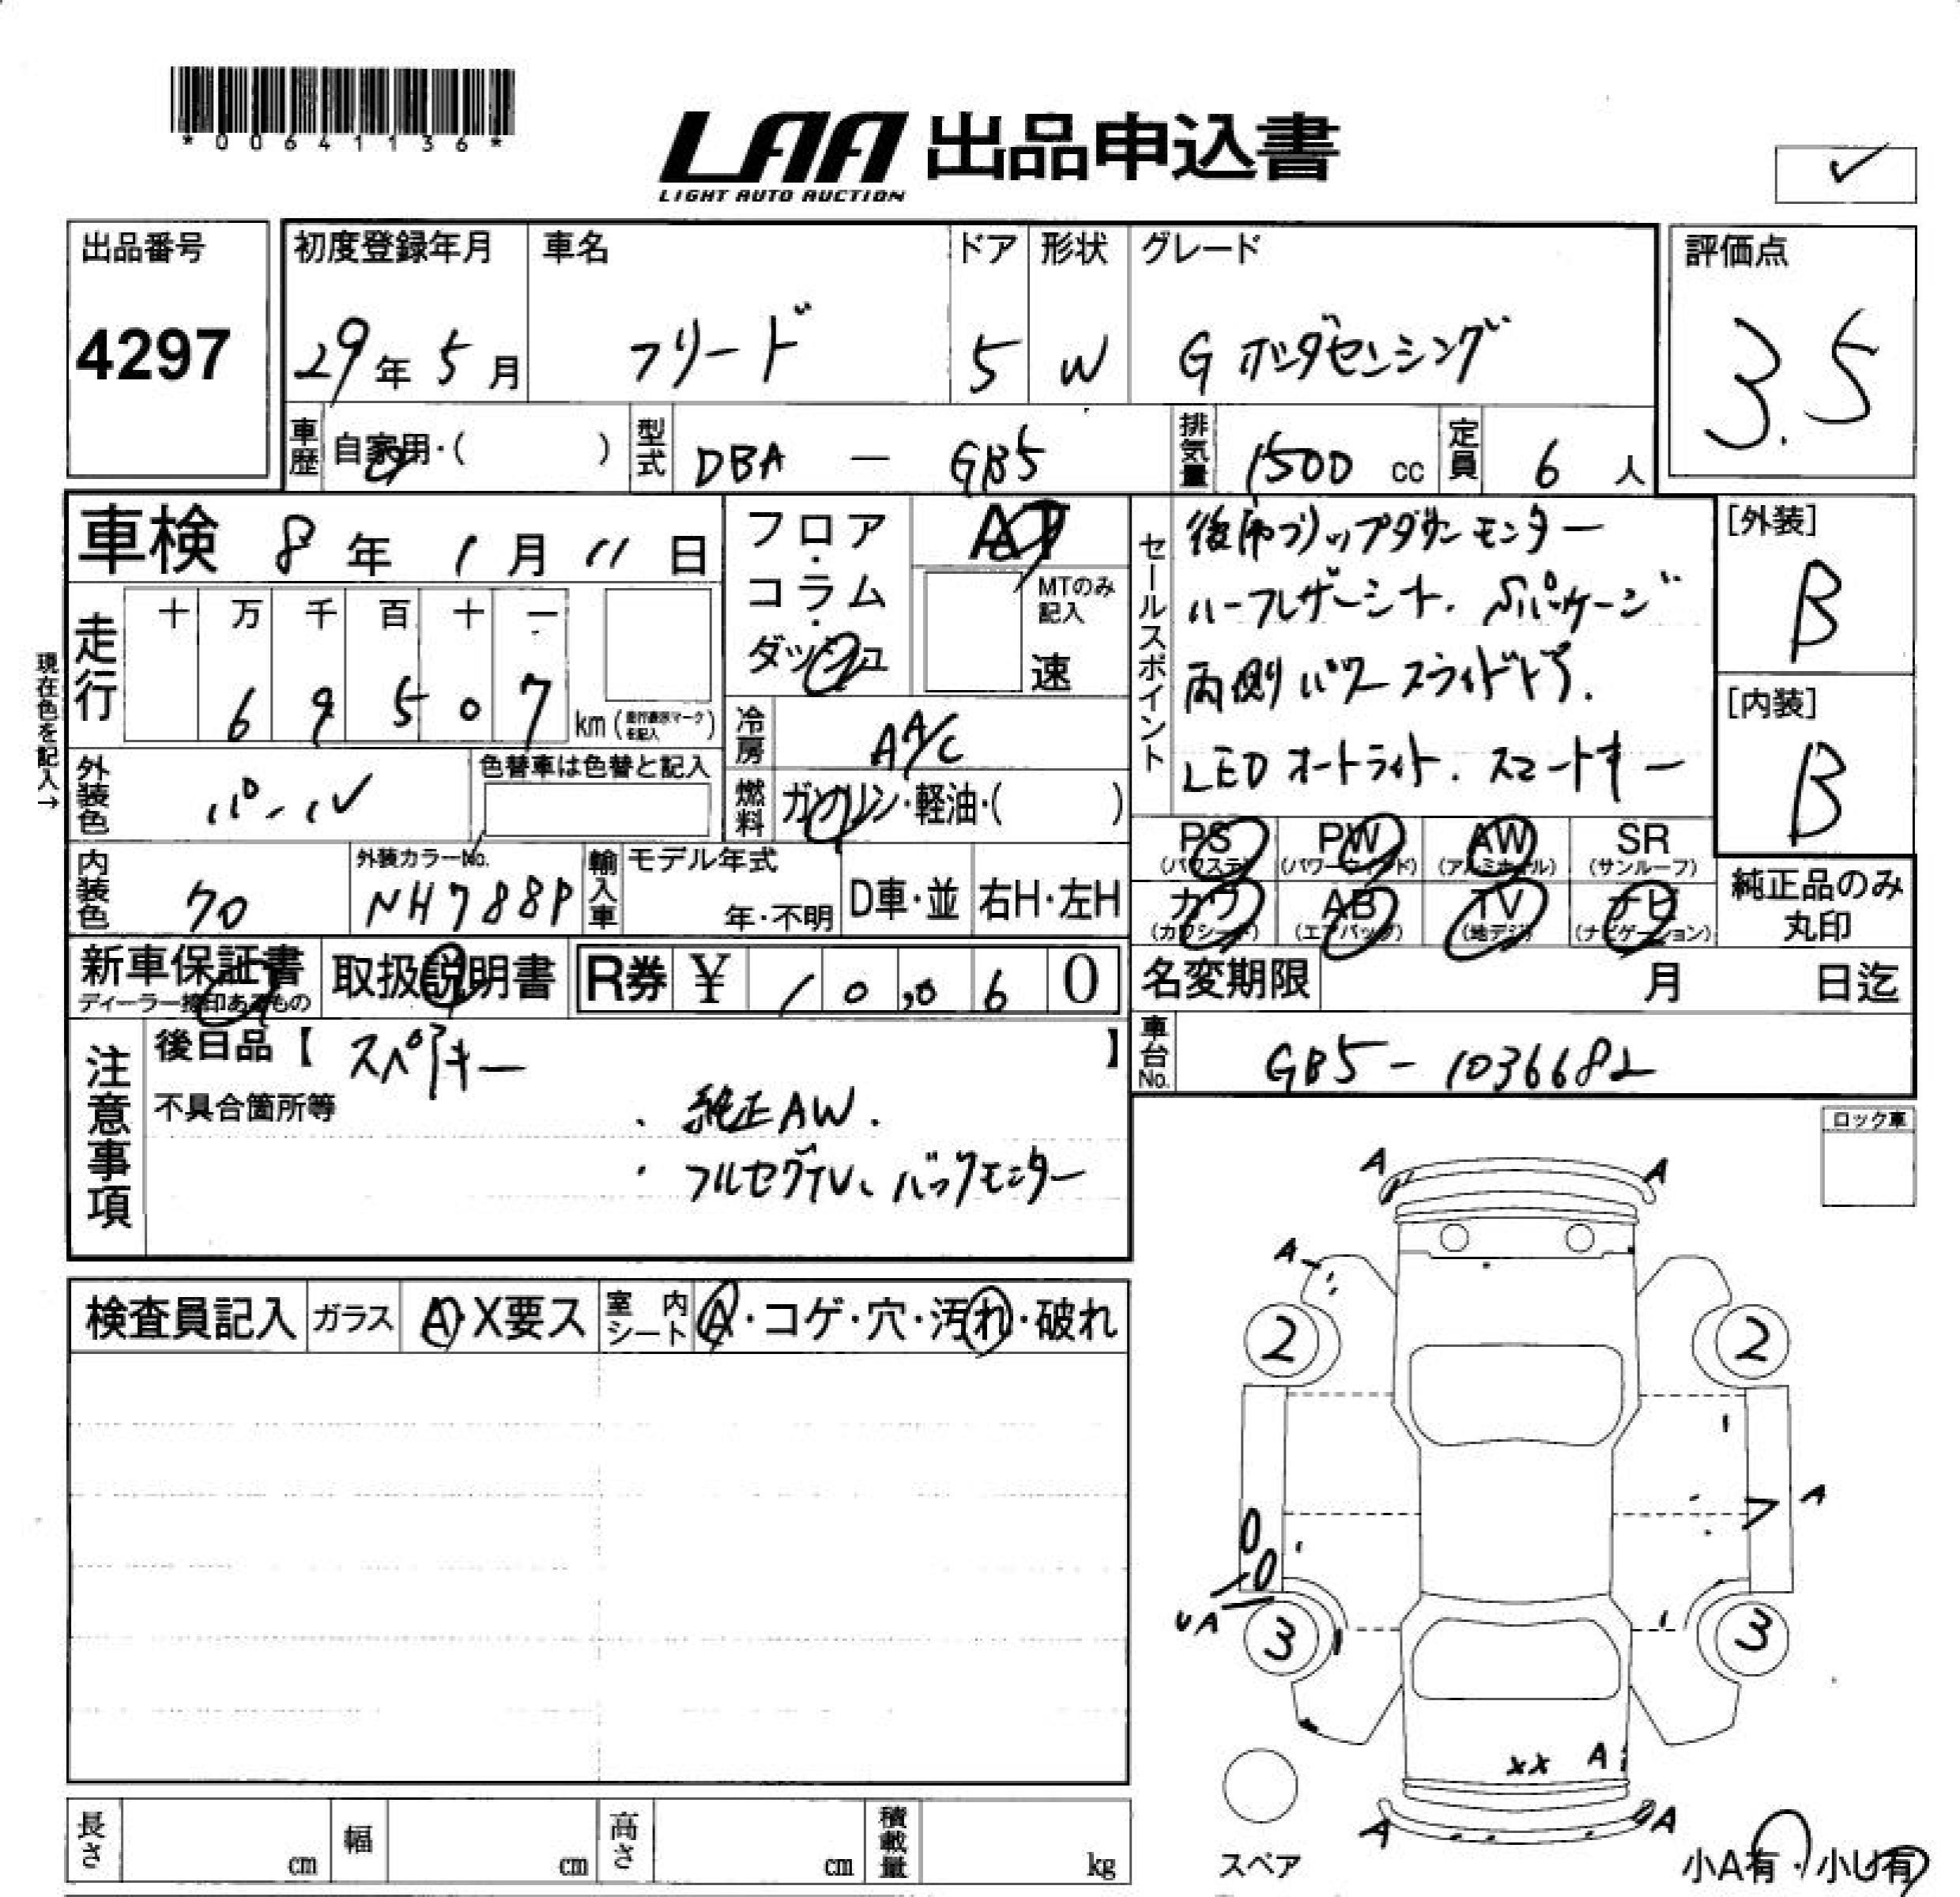 *00641136*
LAA 出品申込書
LIGHT AUTO AUCTION
✓
出品番号
4297
初度登録年月
29年5月
車名
フリード
ドア
5
形状
W
グレード
G ホンダセンシング
評価点
3.5
車歴 自家用・( )
型式 DBA - GB5
排気量 1500 cc
定員 6 人
車検 8年1月11日
走行 十 万 千 百 十 一
6 9 5 0 7 km (走行表示マークを記入)
現在色を記入→
外装色 パール
色替車は色替と記入
内装色 70
外装カラーNo. NH788P
フロア・コラム・ダッシュ
AT
MTのみ記入
速
冷房 AA/C
燃料 ガソリン・軽油・( )
輸入車 モデル年式 年・不明
D車・並 右H・左H
セールスポイント
後席フリップダウンモニター
ハーフレザーシート. Sパッケージ
両側パワースライドドア.
LEDオートライト. スマートキー
[外装]
B
[内装]
B
PS (パワステ) PW (パワーウィンド) AW (アルミホイル) SR (サンルーフ)
カワ (カワシート) AB (エアバッグ) TV (地デジ) ナビ (ナビゲーション)
純正品のみ丸印
新車保証書
ディーラー捺印あるもの
取扱説明書
R券 ¥ 10,060
名変期限 月 日迄
注意事項
後日品【スペアキー】
不具合箇所等
・純正AW.
・フルセグTV、バックモニター
車台No. GB5-1036682
ロック車
検査員記入 ガラス A・X要ス 室内シート A・コゲ・穴・汚れ・破れ
A A
A
2 2
A
UA
3 3
XX A
A A
スペア
小A有・小U有
長さ cm 幅 cm 高さ cm 積載量 kg